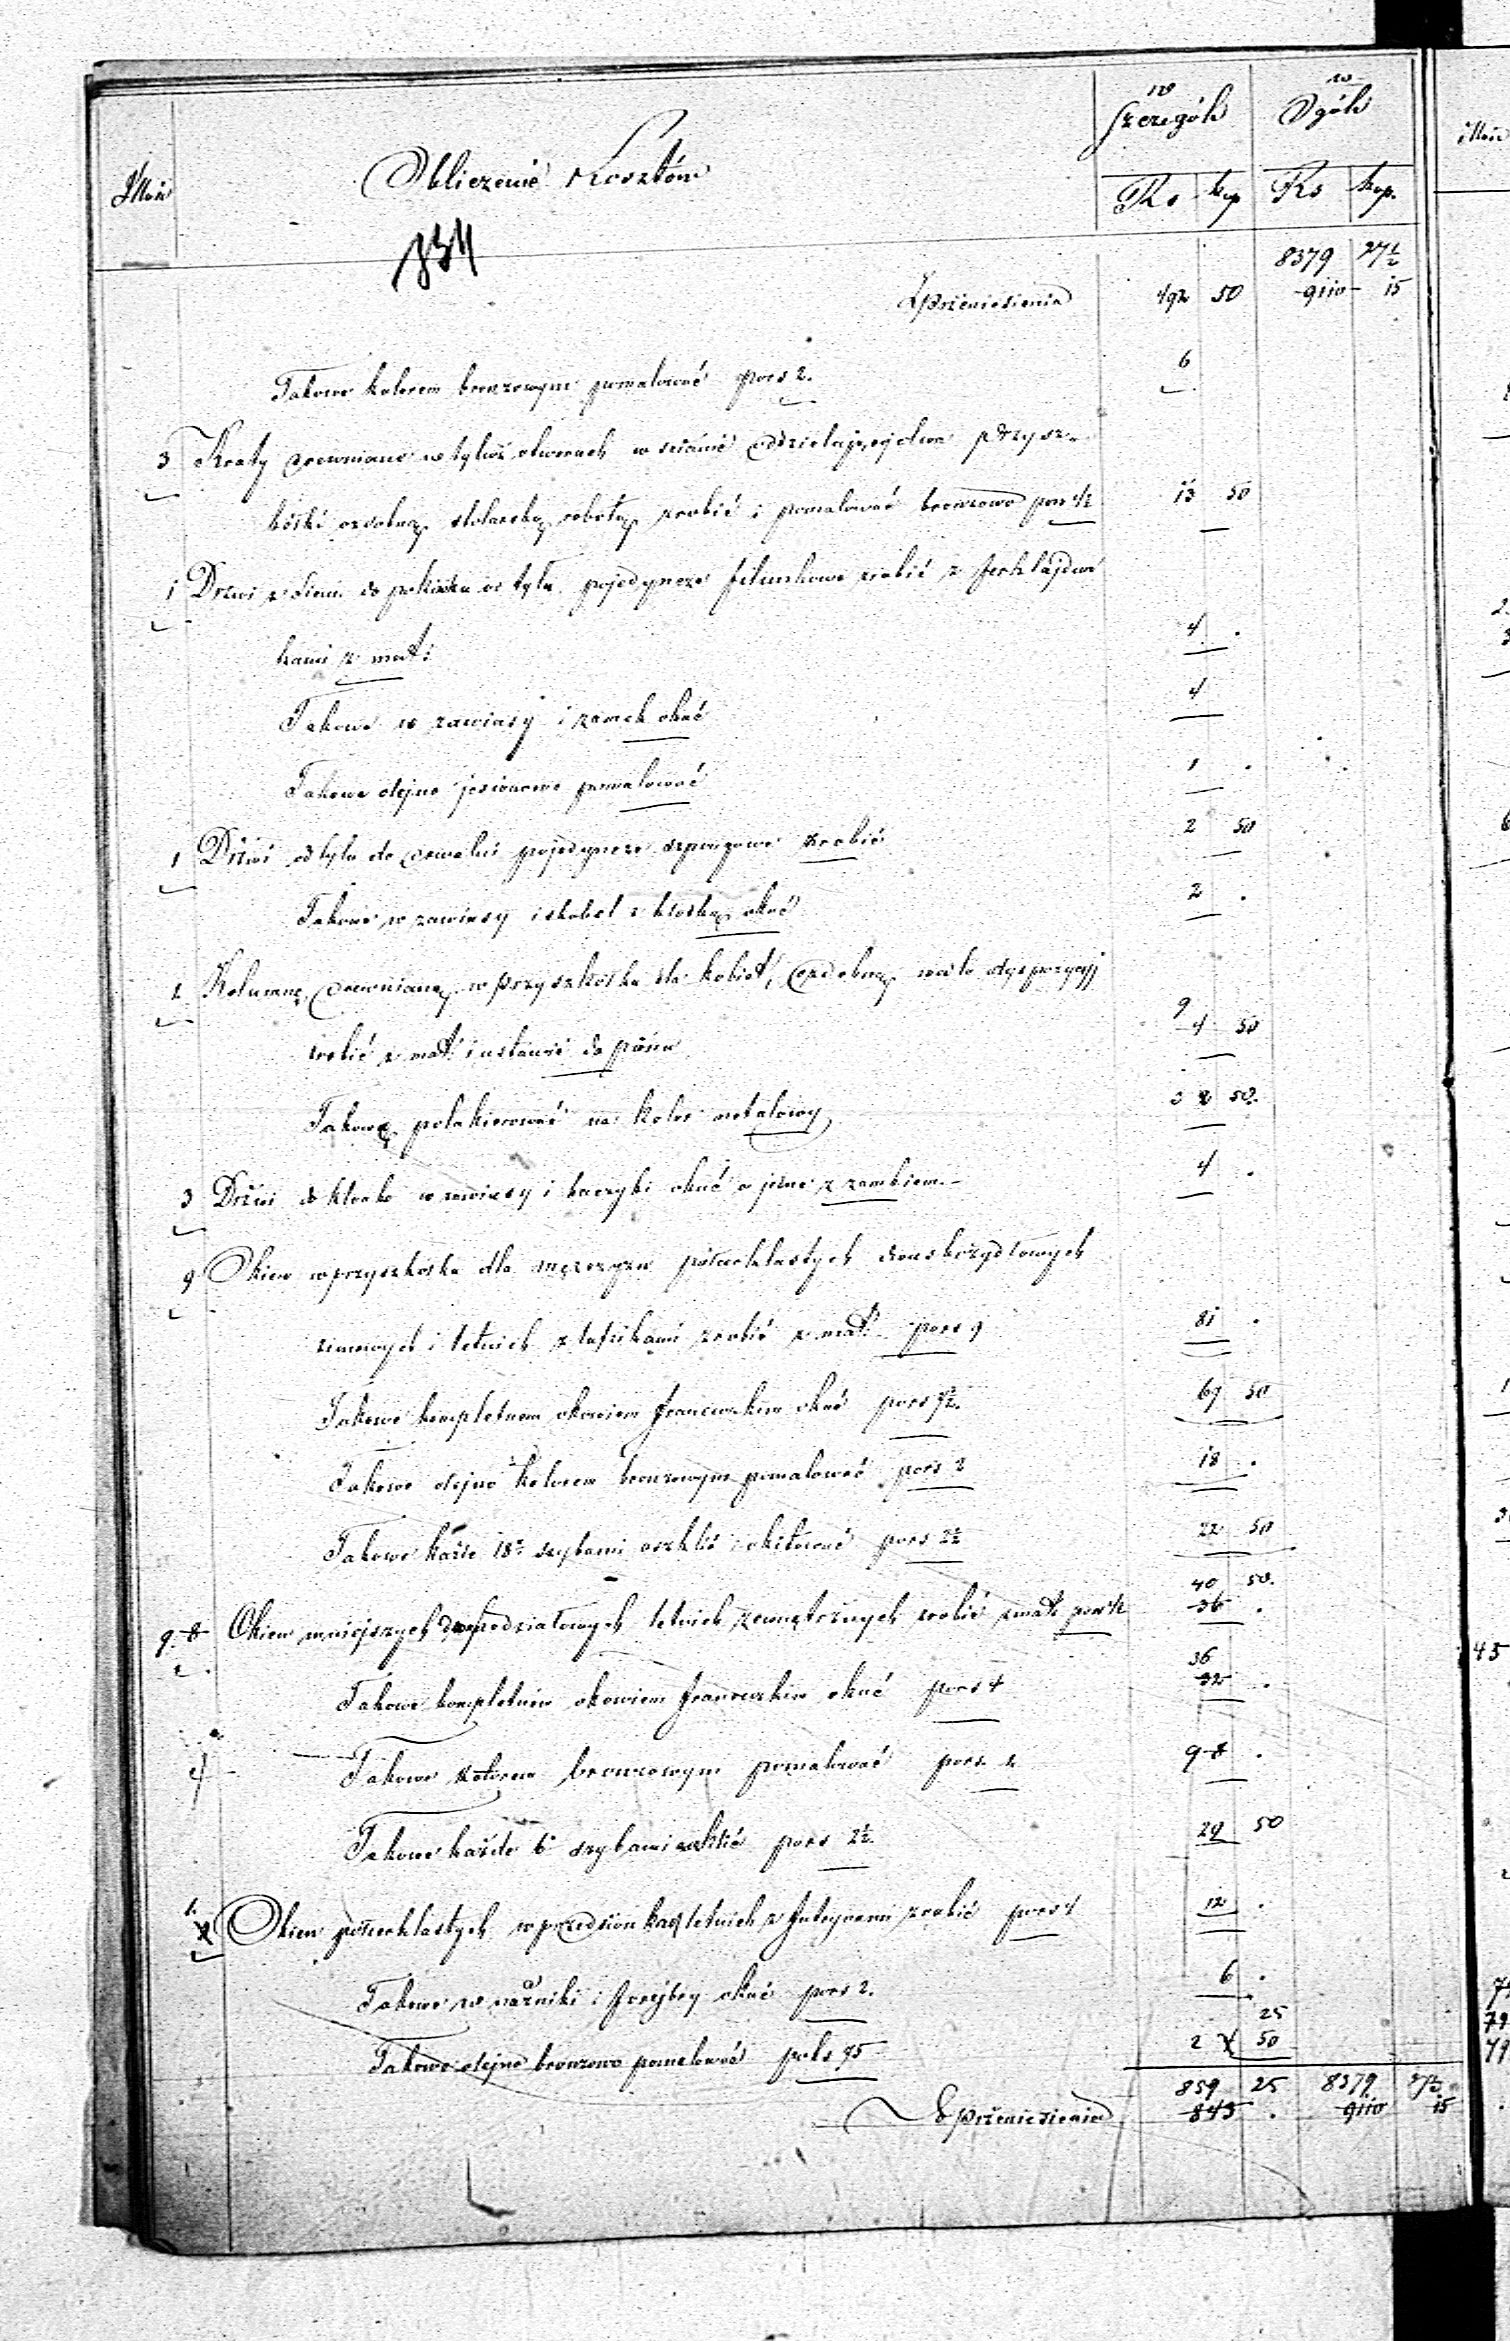 w Szczególe w Ogóle
Ilość Obliczenie Kosztów Rs kop Rs kop.
334
8379 27½
Z przeniesienia 492 50 9110 15
Takowe kolorem bronzowym pomalować po rs 2. 6
3 Kraty drewniane w tyluż otworach w ścianie oddzielającej dwa przysz-
kółki ozdobną stolarską robotą zrobić i pomalować bronzowo po rs 4½ 13 50
1 Drzwi z sieni do pokoiku od tyłu pojedyncze filunkowe zrobić z ferklajdun-
kami z mat: 4 .
Takowe w zawiasy i zamek okuć 4
Takowe olejno jesionowo pomalować 1 .
1 Drzwi od tyłu do drwalni pojedyncze szpungowe zrobić 2 50
Takowe w zawiasy i skobel z kłódką okuć 2 .
1 Kolumnę drewnianą w przyszkółku dla kobiet, ozdobną wedle dyspozycyj 9
zrobić z mat: i ustawić do pionu 4 50
Takową polakierować na kolor metalowy 50.
3 Drzwi do kloak w zawiasy i haczyki okuć a jedne z zamkiem.- 4 .
9 Okien w przyszkółku dla mężczyzn półcyrklastych dwuskrzydłowych
zimowych i letnich z lufcikami zrobić z mat: po rs 9 81 .
Takowe kompletnem okowiem francuzkim okuć po rs 7½. 67 50
Takowe olejno kolorem bronzowym pomalować po rs 2 18 .
Takowe każde 18 szybami oszklić i okitować po rs 2½ 22 50
40 50.
9 8 Okien mniejszych letnich zewnętrznych zrobić z mat: po rs 4½ 36 .
36
Takowe kompletnem okowiem francuzkim okuć po rs 4 32 .
Takowe kolorem bronzowym pomalować po rs 1 9 8 .
Takowe każde 6 szybami oszklić po rs 2½. 29 50
Okien półcyrklastych w przedsionkach letnich z futrynami zrobić po rs 4 12 .
Takowe w narożniki i frejbry okuć po rs 2. 6 .
25
Takowe olejno bronzowo pomalować po k 75 2 50
859 25 8379 27½
Do przeniesienia 843 . 9110 15